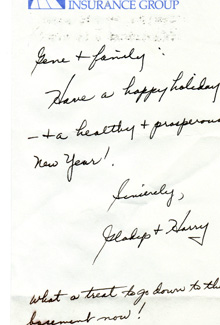 INSURANCE GROUP
Gene + family:
Have a happy holiday
- + a healthy + prosperous
New Year!
Sincerely,
Gladys + Harry
what a treat to go down to the
basement now!